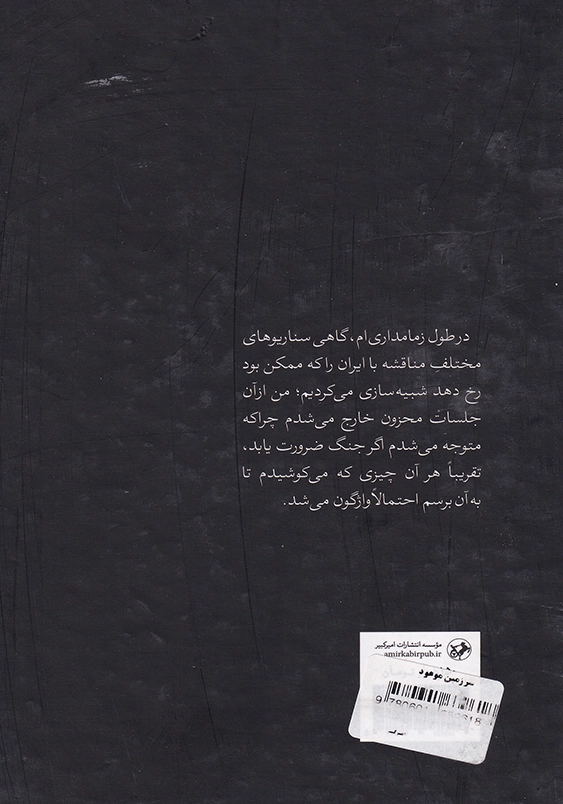 در طول زمامداری‌ام، گاهی سناریوهای
مختلفِ مناقشه با ایران را که ممکن بود
رخ دهد شبیه‌سازی می‌کردیم؛ من از آن
جلسات محزون خارج می‌شدم چراکه
متوجه می‌شدم اگر جنگ ضرورت یابد،
تقریباً هر آن چیزی که می‌کوشیدم تا
به آن برسم احتمالاً واژگون می‌شد.
مؤسسه انتشارات امیرکبیر
amirkabirpub.ir
سرزمین موعود